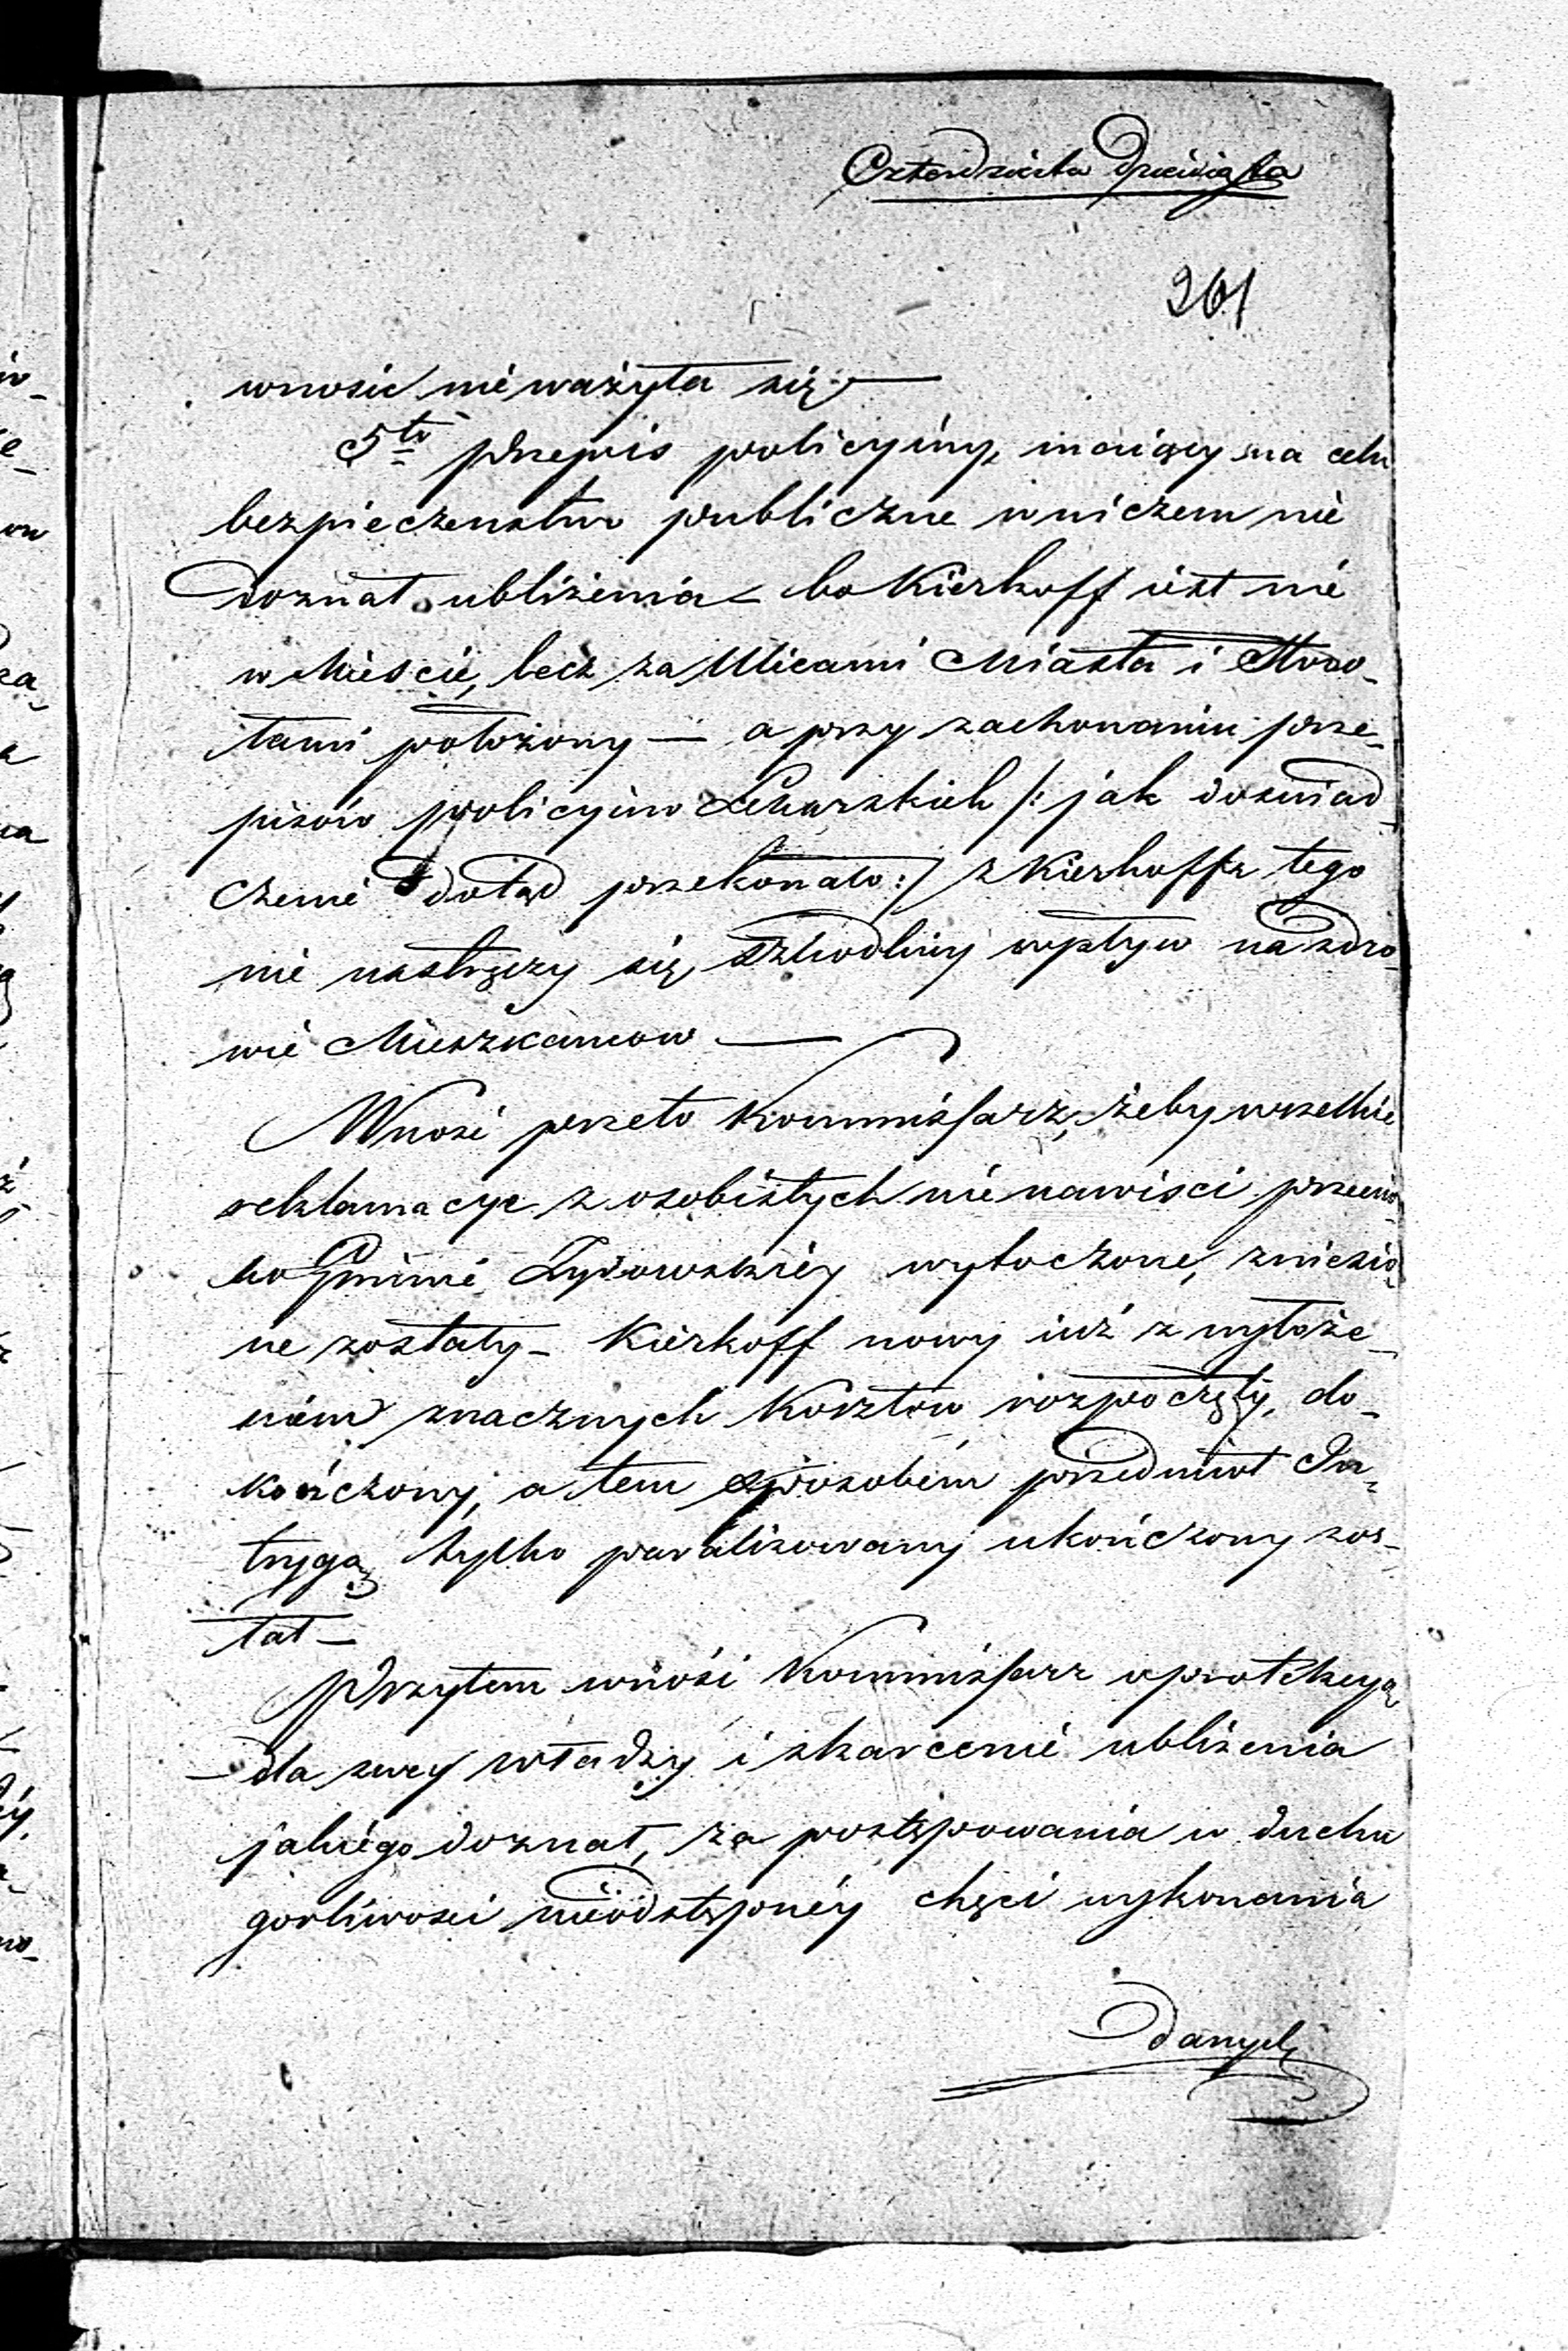 Czterdziesta Dziewiąta
261
wnosić nie ważyła się. —
5to Przepis policyiny, maiący na celu
bezpieczenstwo publiczne w niczem nie
doznał ubliżenia – bo Kierkoff iest nie
w Mieście, lecz za Ulicami Miasta i Stodo-
łami położony — a przy zachowaniu prze-
pisów policyino Lekarskich /: jak doswiad-
czenie dotąd przekonało :/ z Kierkoffa tego
nie nastręczy się szkodliwy wpływ na zdro-
wie Mieszkancow —
Wnosi przeto Kommissarz, żeby wszelkie
reklamacye z osobistych nienawisci przeciw-
ko Gminie Żydowskiéy wytoczone, zniesio-
ne zostały – Kierkoff nowy iuż z wyłoże-
niem znacznych Kosztow rozpoczęty, do-
kończony, a tem sposobem przedmiot In-
trygą tylko paraliżowany ukończony zos-
tał —
Przytem wnosi Kommissarz o protekcyą
dla swey władzy i skarcenie ubliżenia
jakiego doznał, za postępowania w duchu
gorliwosci nieodstępnéy chęci wykonania